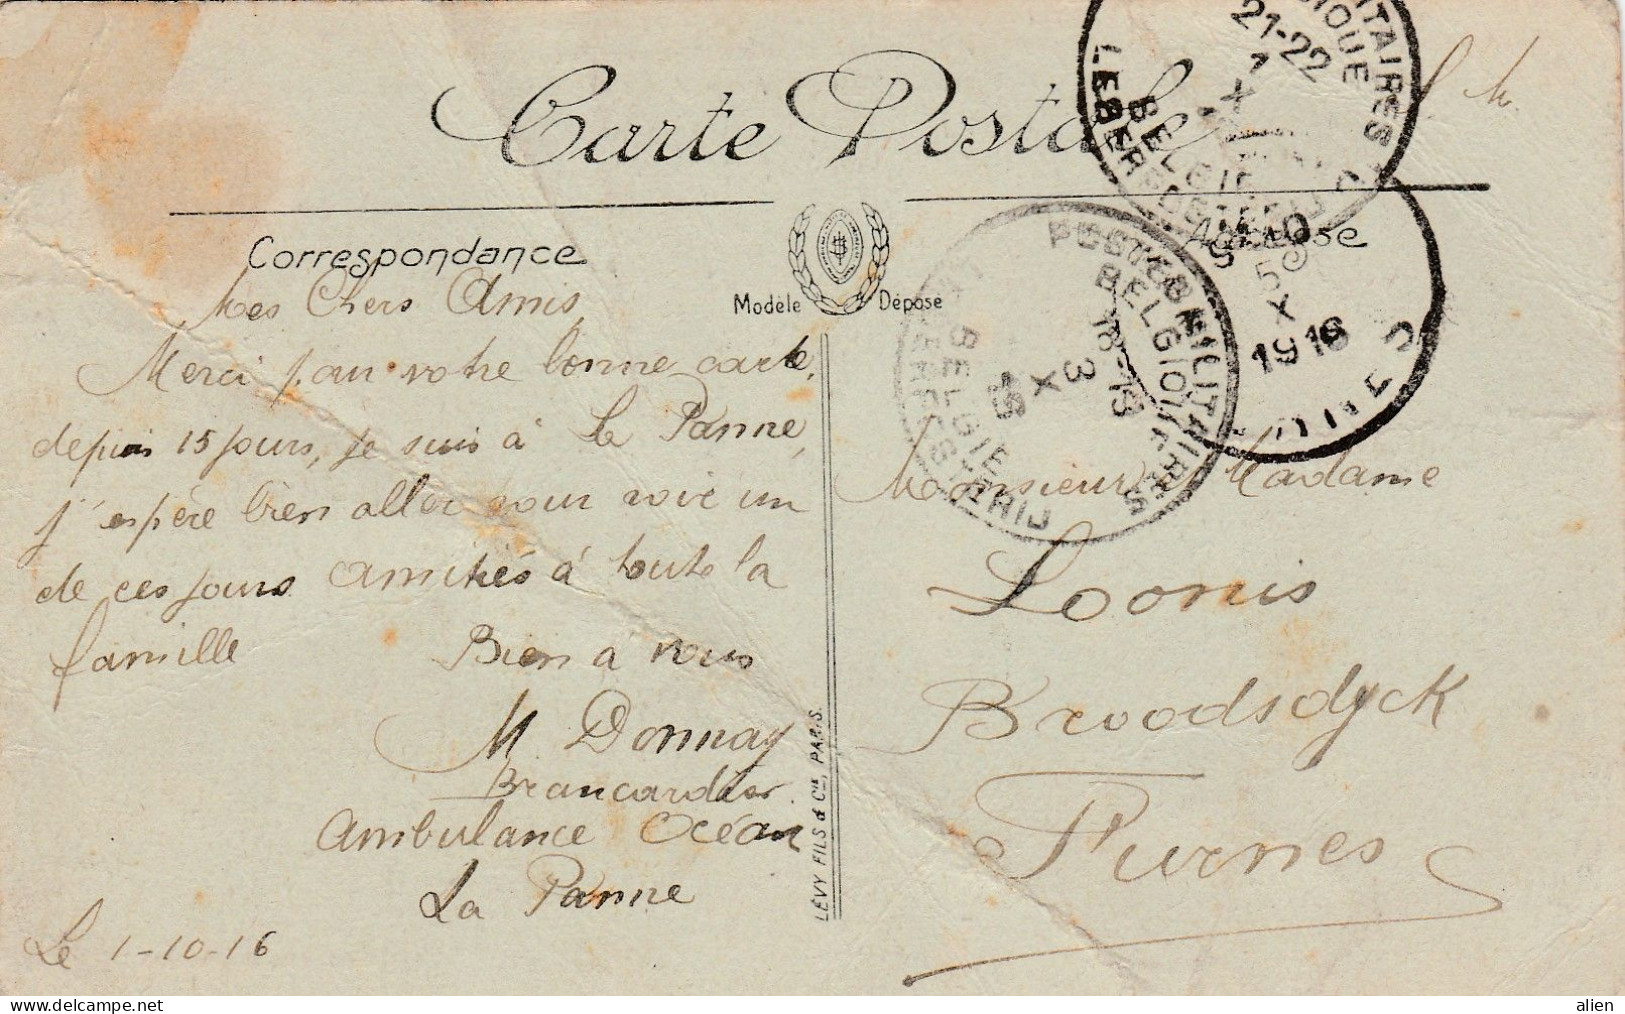 Carte Postale
Correspondance
Adresse
Modèle Déposé
S. M.
Mes Chers Amis,
Merci pour votre bonne carte,
depuis 15 jours, je suis à La Panne,
j'espère bien aller vous voir un
de ces jours amitiés à toute la
famille Bien à vous
M Donnay
Brancardier
Ambulance Océan
La Panne
Le 1-10-16
Monsieur Madame
Loonis
Broodsdyck
Furnes
LÉVY FILS & Cie, PARIS.
21-22
1 X
BELGIE
POSTES MILITAIRES
BELGIQUE
18-19
3
X
16
BELGIE
5 X
1916
alien